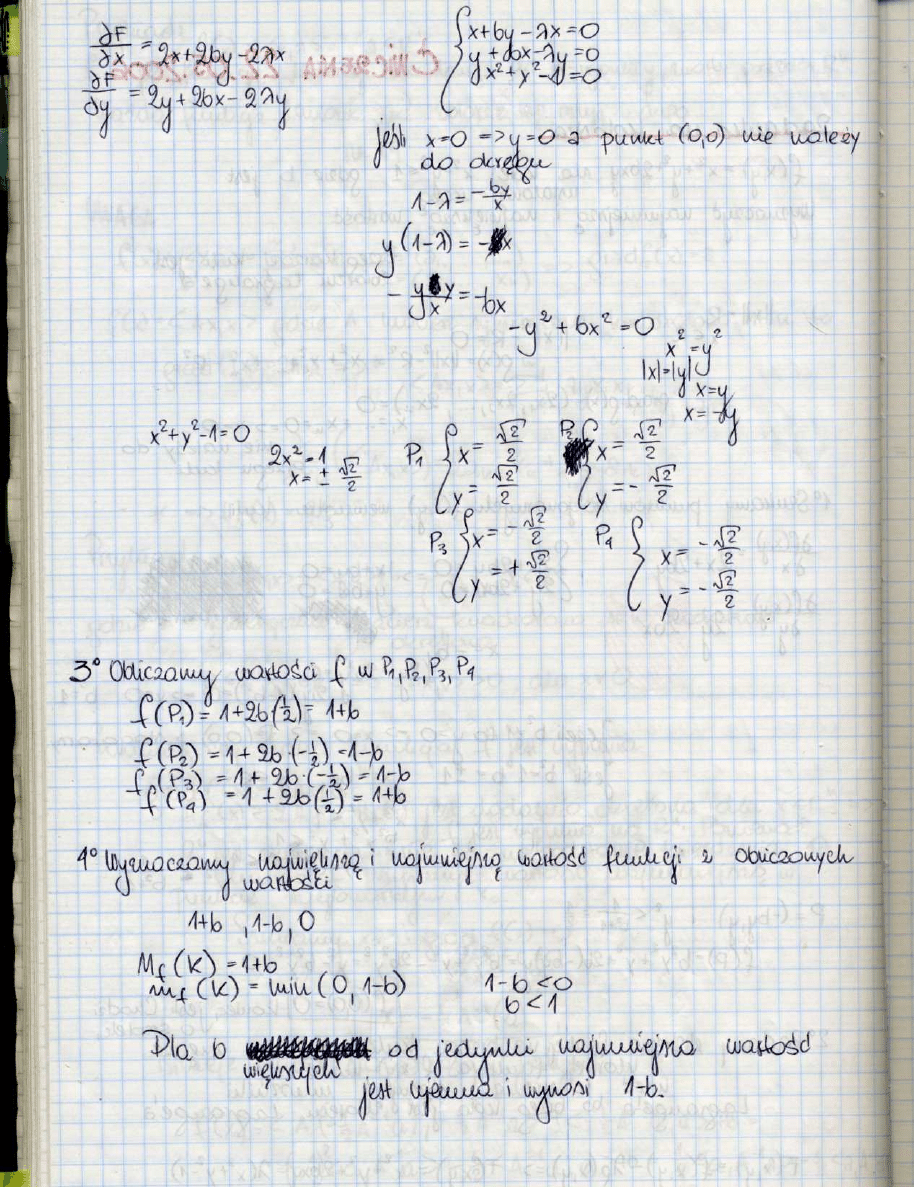 ∂F/∂x = 2x+2by-2λx
∂F/∂y = 2y+2bx-2λy
{ x+by-λx=0
y+bx-λy=0
x²+y²-1=0
jeśli x=0 => y=0 a punkt (0,0) nie należy
do okręgu
1-λ = -by/x
y(1-λ) = -bx
- yby/x = -bx
-y²+bx²=0
x²=y²
|x|=|y|
x=y
x=-y
x²+y²-1=0
2x²=1
x=± √2/2
P₁ { x= √2/2
y= √2/2
P₂ { x= √2/2
y=- √2/2
P₃ { x= -√2/2
y=+ √2/2
P₄ { x= -√2/2
y= -√2/2
3° Obliczamy wartości f w P₁,P₂,P₃,P₄
f(P₁) = 1+2b(½) = 1+b
f(P₂) = 1+2b·(-½) =1-b
f(P₃) = 1+2b·(-½) = 1-b
f(P₄) = 1+2b(½) = 1+b
4° Wyznaczamy największą i najmniejszą wartość funkcji z obliczonych
wartości
1+b , 1-b, 0
M_f(K) = 1+b
m_f(K) = min(0, 1-b)
1-b<0
b<1
Dla b większych od jedynki najmniejsza wartość
jest ujemna i wynosi 1-b.